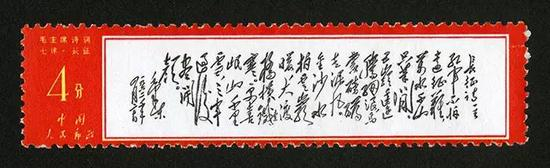 毛主席诗词
七律·长征
4分
中国
人民邮政
长征诗一首
红军不怕
远征难
万水千山
只等闲
五岭逶迤
腾细浪乌
蒙磅礴
走泥丸
金沙水
拍云崖
暖大渡
桥横铁
索寒更喜
岷山千里
雪三军
过后
尽开
颜
毛泽东